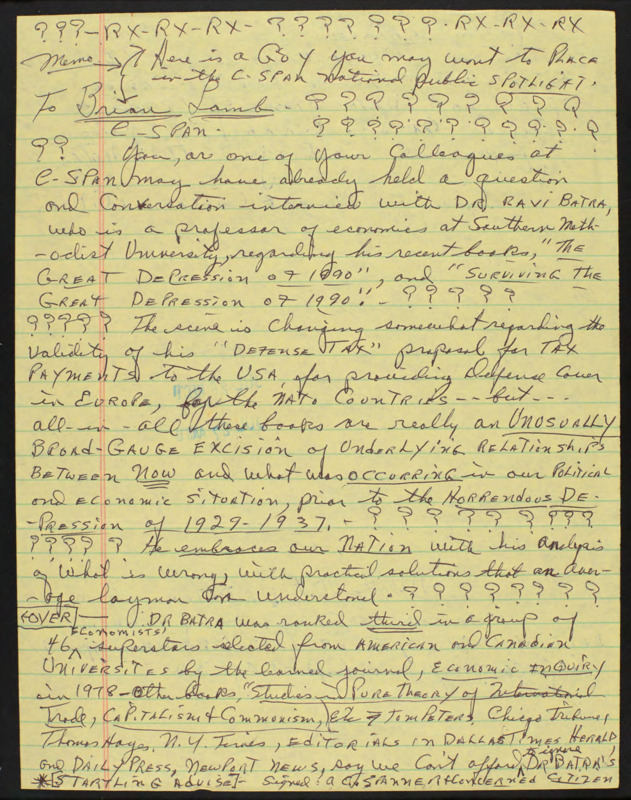 ? ? ? - RX - RX - RX - ? ? ? ? ? ? ? . RX - RX - RX
Memo → Here is a GOY you may want to PLACE
in the C-SPAN national public SPOTLIGHT.
To Brian Lamb - ? ? ? ? ? ? ? ? ?
C-SPAN. ? ? ? ? ? ? ? ? ? ?
? ? You, or one of your Colleagues at
C-SPAN may have already held a question
and Conversation interview with DR. RAVI BATRA,
who is a professor of economics at Southern Meth-
-odist University, regarding his recent books, "THE
GREAT DEPRESSION OF 1990", and "SURVIVING THE
GREAT DEPRESSION OF 1990". - ? ? ? ? ?
? ? ? ? ? The scene is changing somewhat regarding the
validity of his "DEFENSE TAX" proposal for TAX
PAYMENTS to the USA, for providing Defense Cover
in EUROPE, for the NATO COUNTRIES -- but ---
all-in-all these books are really an UNUSUALLY
BROAD-GAUGE EXCISION of UNDERLYING RELATIONSHIPS
BETWEEN NOW and what was OCCURRING in our POLITICAL
and ECONOMIC SITUATION, prior to the HORRENDOUS DE-
-PRESSION of 1929-1937. - ? ? ? ? ? ? ? ? ?
? ? ? ? ? He embraces our NATION with his analysis
of what is wrong, with practical solutions that an aver-
-age layman can understand. ? ? ? ? ? ? ? ?
(OVER) — DR BATRA was ranked third in a group of
46 ECONOMISTS' superstars selected from AMERICAN and CANADIAN
UNIVERSITIES by the learned journal, ECONOMIC INQUIRY
in 1978 - Other books, "Studies in PURE THEORY of International
Trade, CAPITALISM & Communism, Etc. TOM PETERS, Chicago Tribune,
Thomas Hayes, N.Y. Times, EDITORIALS IN DALLAS TIMES HERALD
and DAILY PRESS, NEWPORT NEWS, say we Can't afford to ignore DR BATRA'S
* STARTLING ADVISE - Signed: a C-SPANNER & CONCERNED CITIZEN